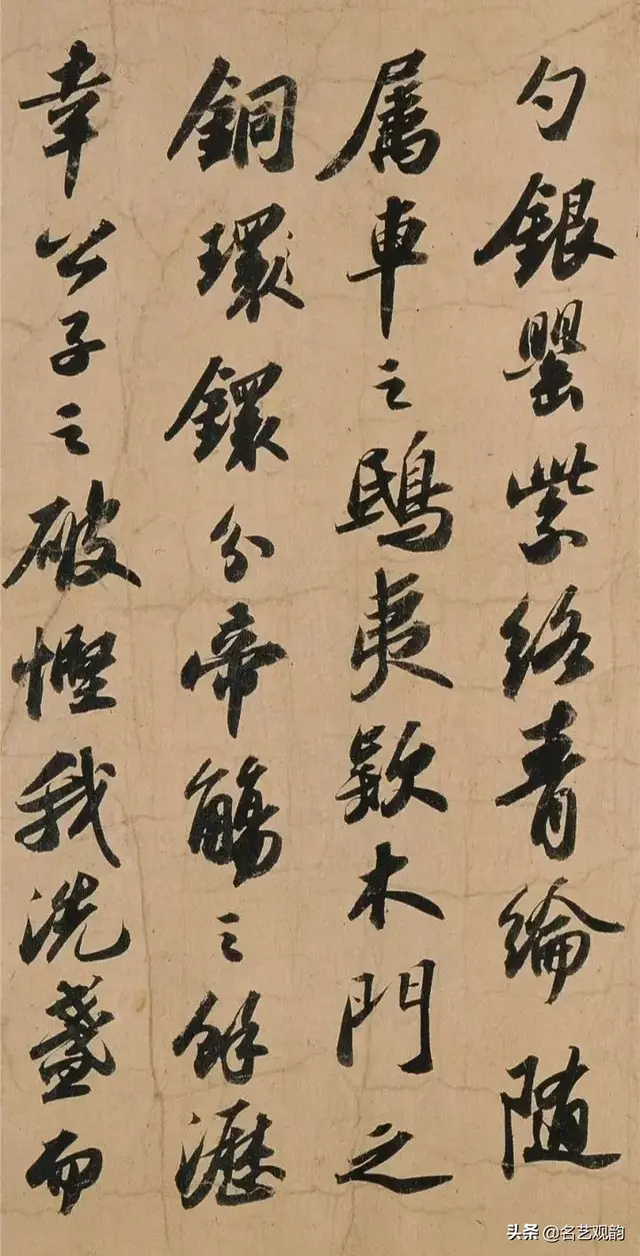 勺銀罌紫絡青綸随
属車之鴟夷款木門之
銅環鐶分帝觴之餘瀝
幸公子之破慳我洗盞而
头条 @名艺观韵